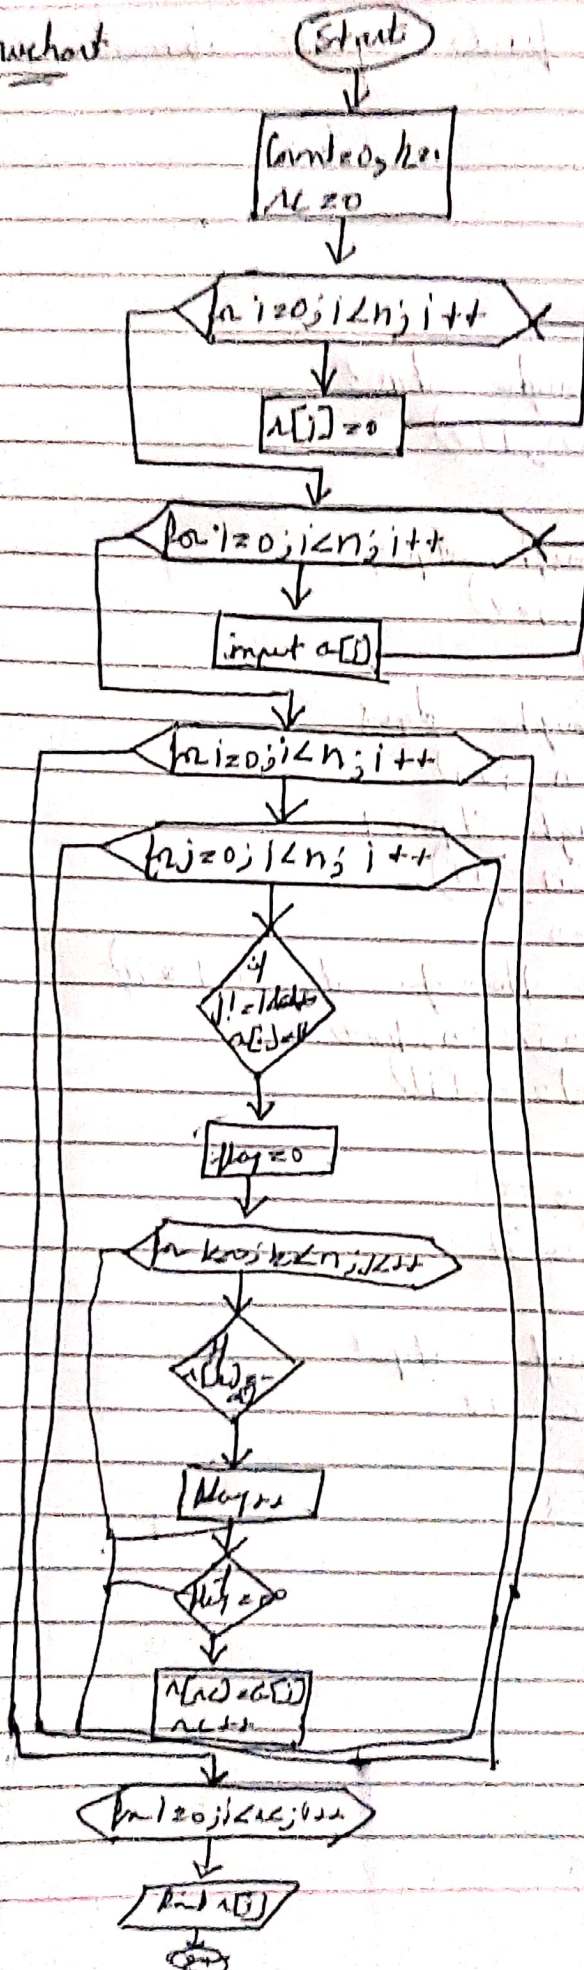 wchart
Start
Count=0, k=
rc=0
for i=0; i<n; i++
r[i]=0
for i=0; i<n; i++
input a[i]
for i=0; i<n; i++
for j=0; j<n; j++
if
flag=0
for k=0; k<n; k++
if
flag++
if
flag==0
r[rc]=a[i]
rc++
for i=0; i<rc; i++
Print r[i]